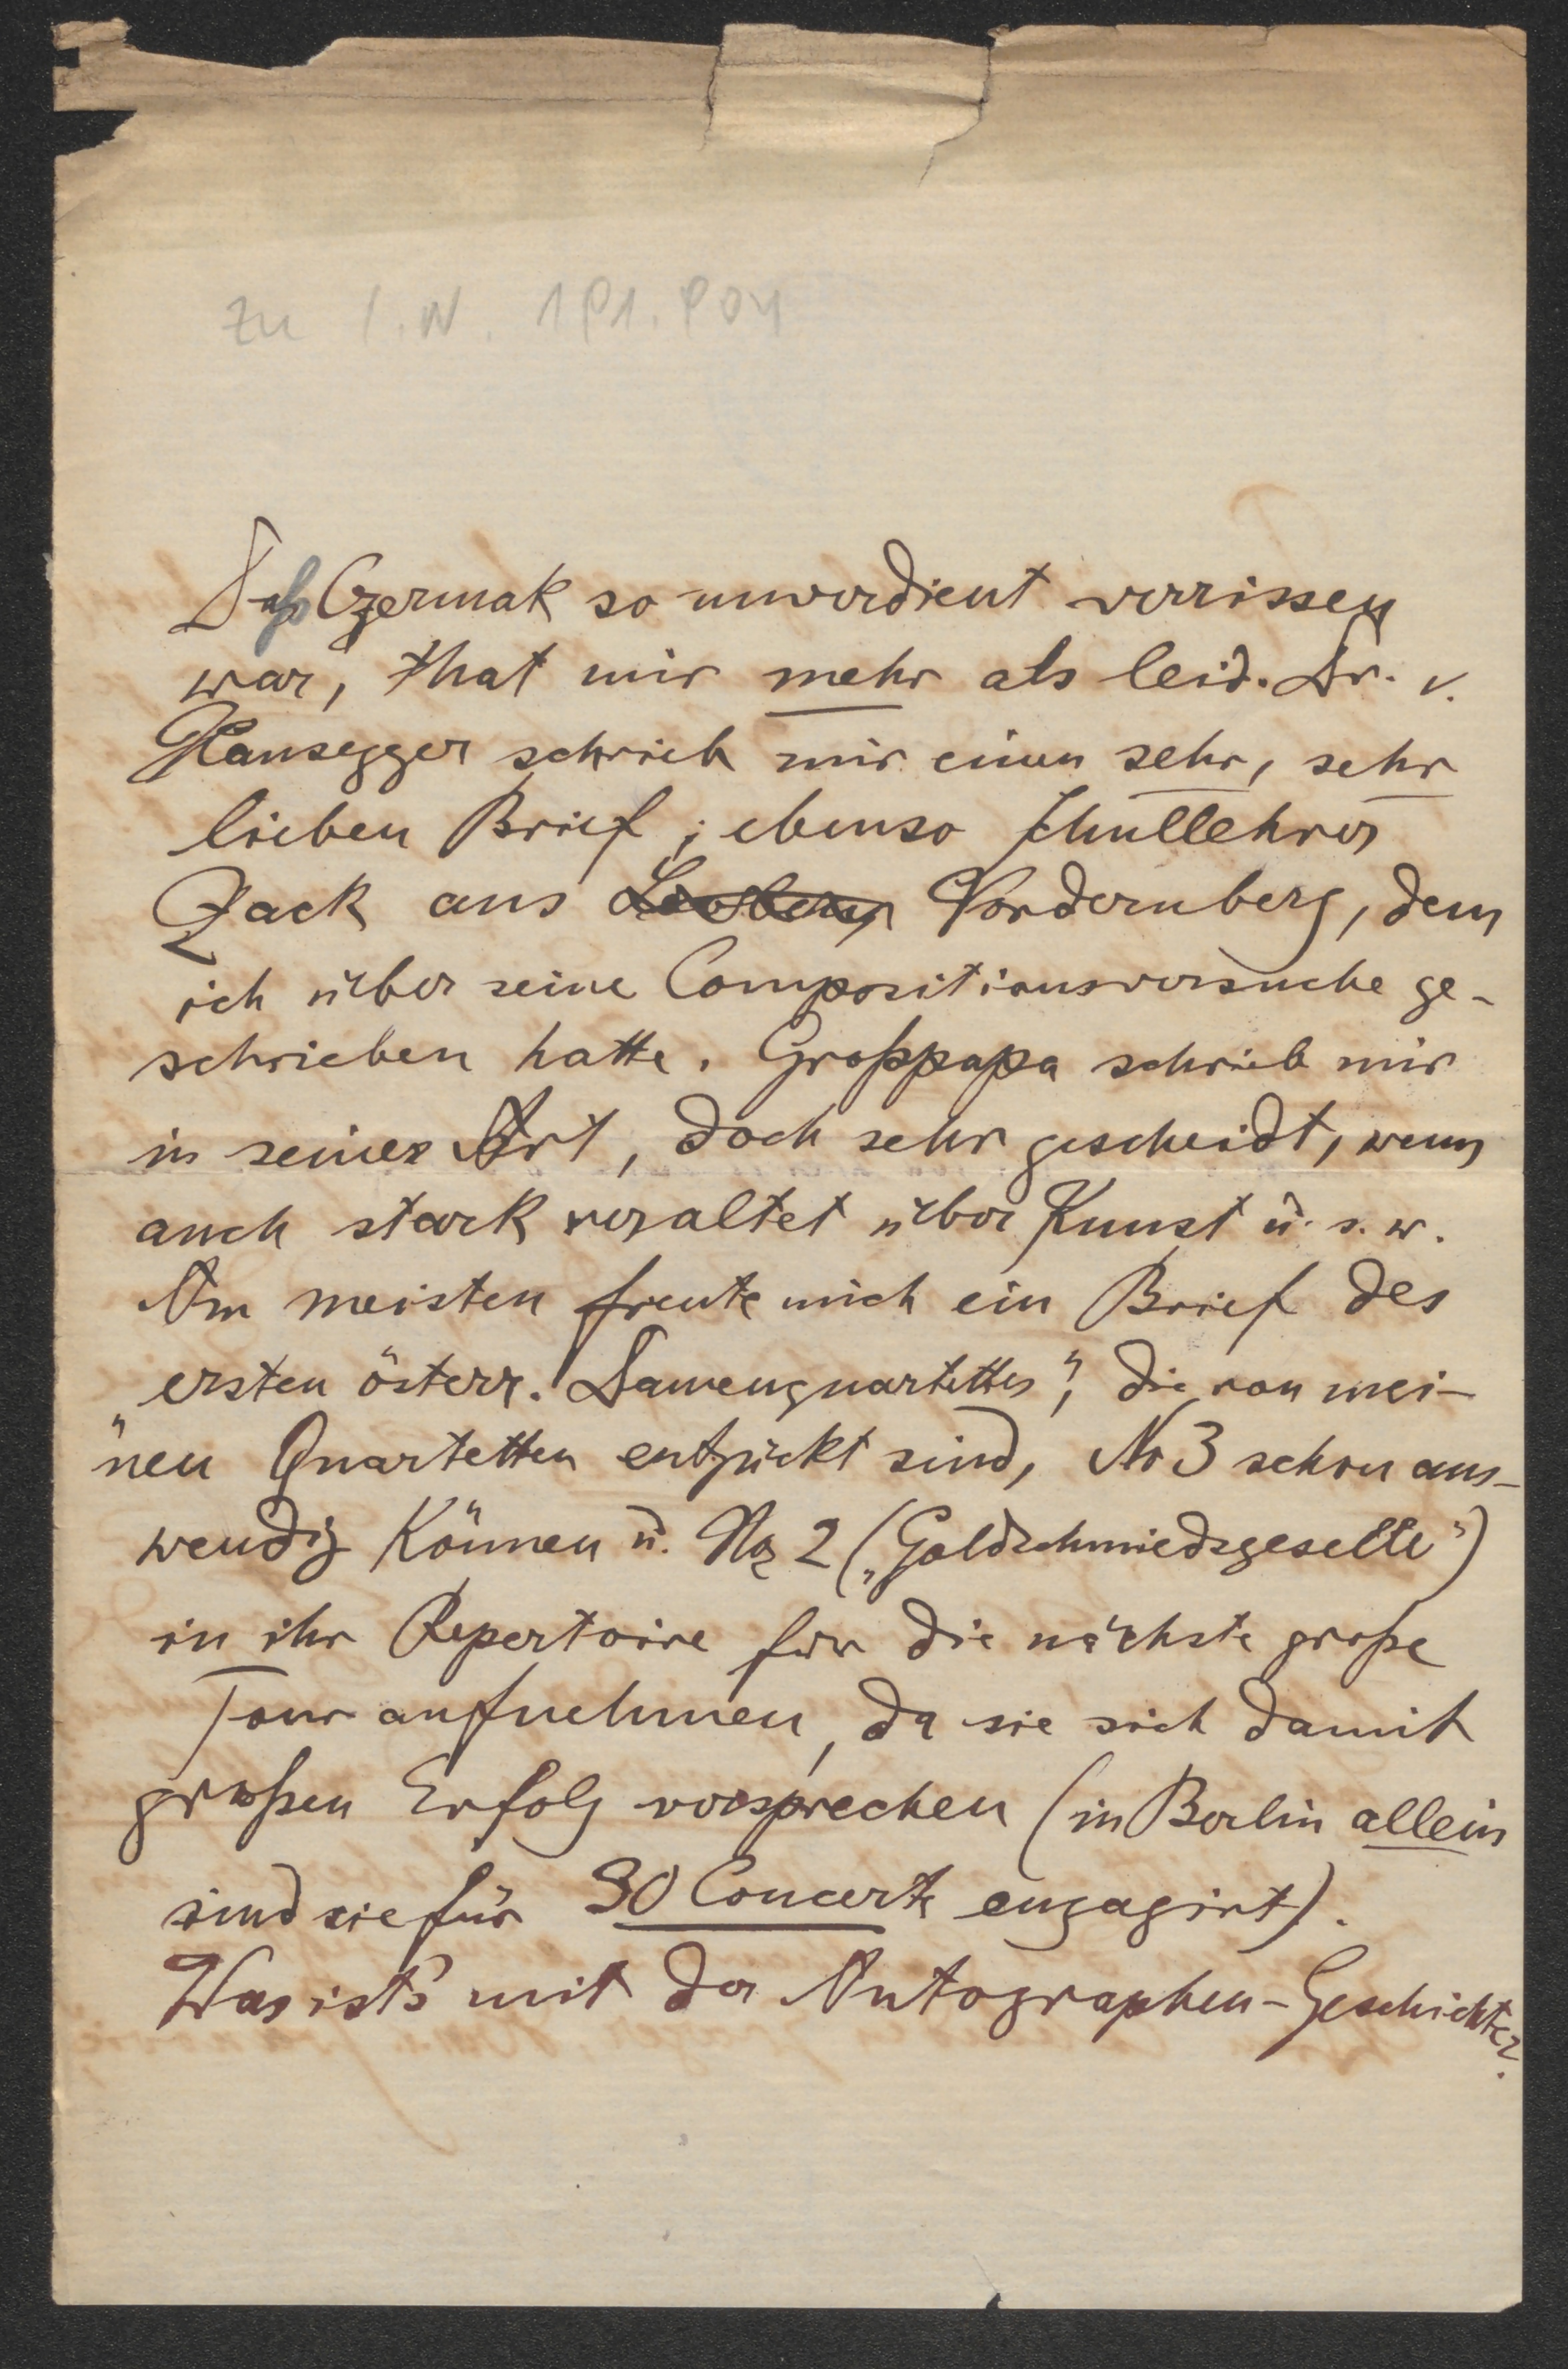 zu I.N. 181.804
Daß Czermak so unverdient verrissen
war, that mir mehr als leid. Dr. v.
Hausegger schrieb mir einen sehr, sehr
lieben Brief; ebenso Schullehrer
Zack aus Leoben Vordernberg, dem
ich über seine Compositionsversuche ge-
schrieben hatte. Großpapa schrieb mir
in seiner Art, doch sehr gescheidt, wenn
auch stark veraltet über Kunst u. s. w.
Am meisten freute mich ein Brief des
"ersten österr. Damenquartettes", die von mei-
nen Quartetten entzückt sind, No 3 schon aus-
wendig können u. No 2 („Goldschmiedsgeselle")
in ihr Repertoire für die nächste große
Tour aufnehmen, da sie sich damit
großen Erfolg versprechen (in Berlin allein
sind sie für 30 Concerte engagirt).
Was ist's mit der Autographen-Geschichte?